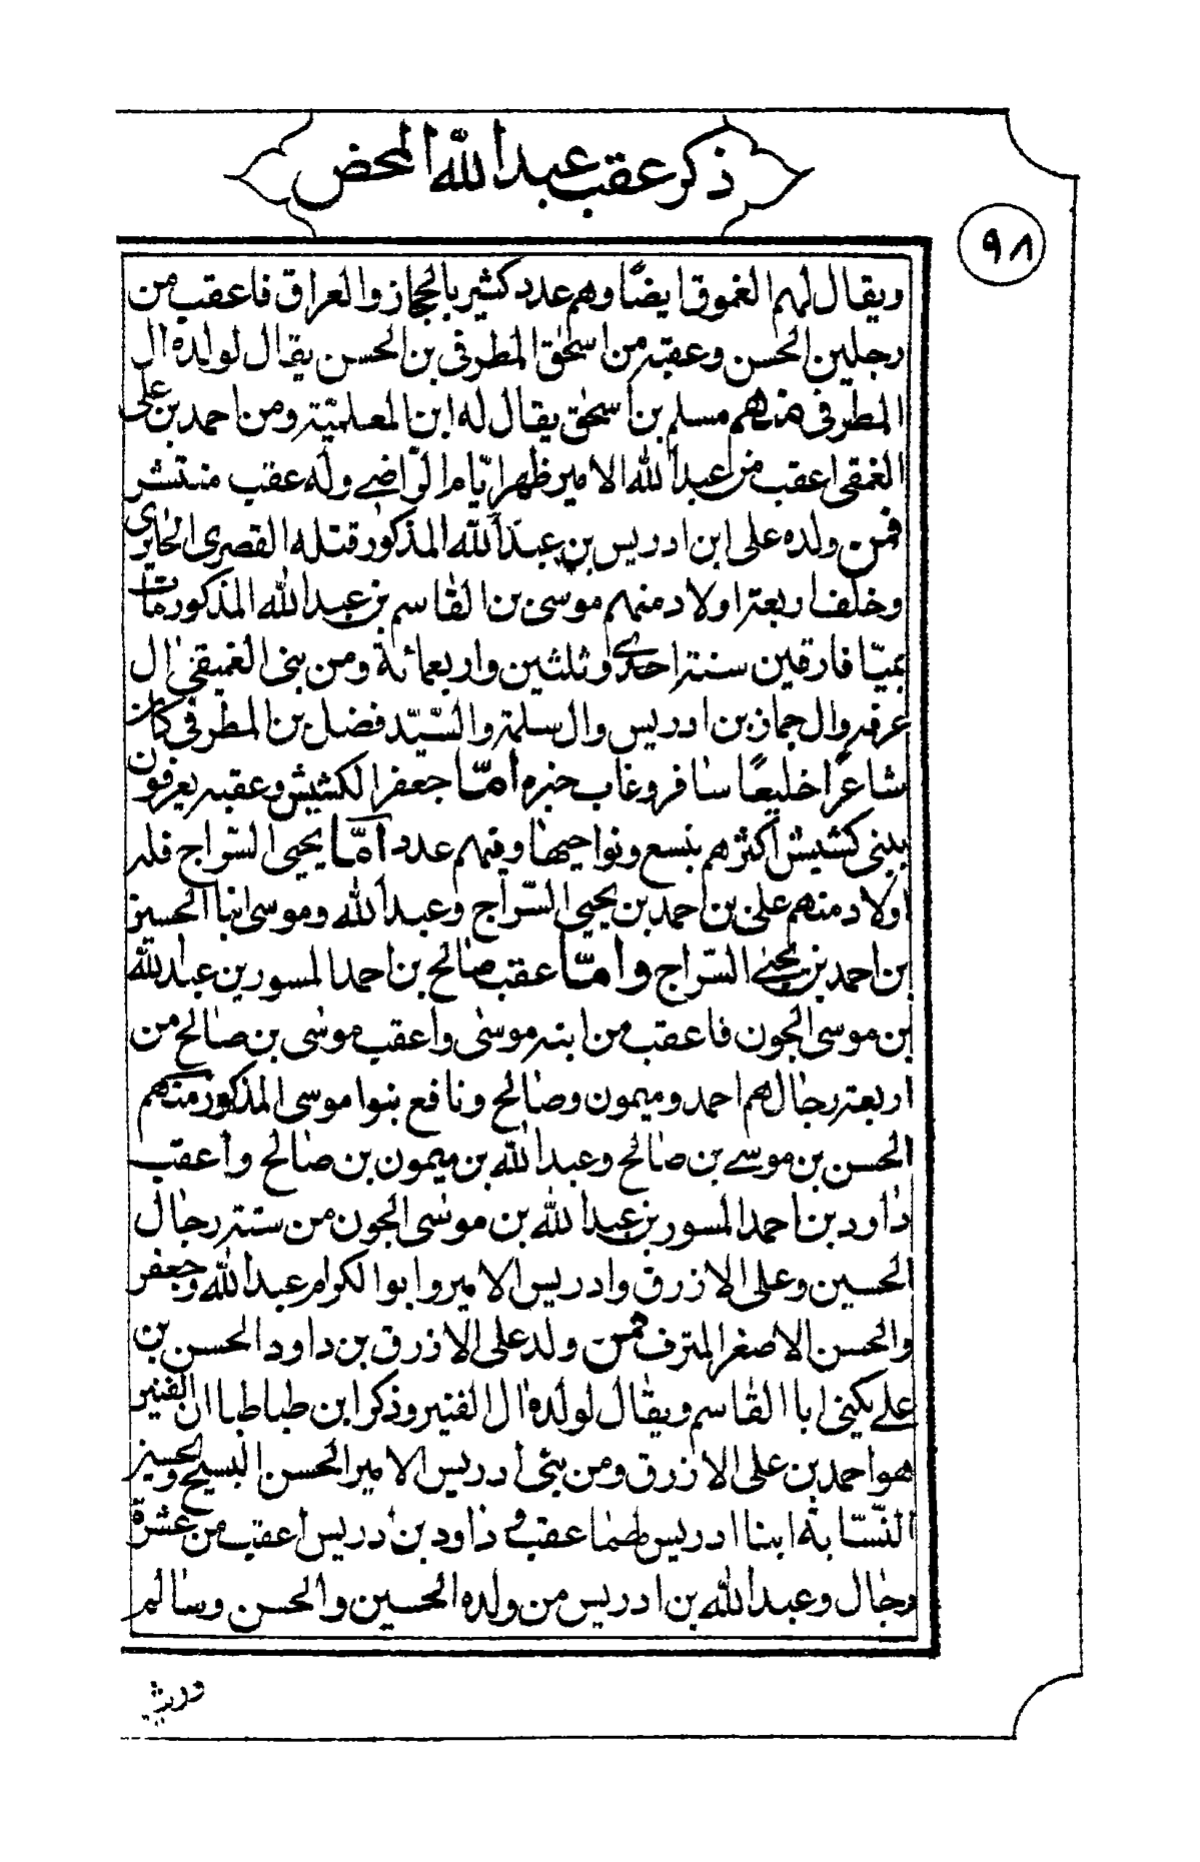 ذكر عقب عبد الله المحض
٩٨
ويقال لهم الغموق ايضًا وهم عدد كثير بالحجاز والعراق فاعقب من
رجلين الحسن وعقبه من اسحٰق المطرفى بن الحسن يقال لولده ال
المطرفى منهم مسلم بن اسحٰق يقال له ابن المعلميّة ومن احمد بن على
الغمقى اعقب من عبد الله الامير ظهر ايّام الرّاضے وله عقب منتشر
فمن ولده على ابن ادريس بن عبد الله المذكور قتله القصرى الحايرى
وخلف اربعة اولاد منهم موسى بن القاسم بن عبد الله المذكور مات
بميّا فارقين سنة احدى وثلثين واربعمائة ومن بنى الغميقى ال
عرفه وال جماز بن ادريس وال سلمة والسّيّد فضل بن المطرفى كان
شاعرًا خليعًا سافر وغاب خبره امّا جعفر الكشيش وعقبه يعرفون
ببنى كشيش اكثرهم بنسع ونواحيها وفيهم عدد امّا يحيى السّراج فله
اولاد منهم على بن احمد بن يحيى السّراج وعبد الله وموسى ابنا الحسين
بن احمد بن يحيے السّراج وامّا عقب صالح بن احمد المسور بن عبد الله
بن موسى الجون فاعقب من ابنه موسى واعقب موسى بن صالح من
اربعة رجال هم احمد وميمون وصالح ونافع بنوا موسى المذكور منهم
الحسن بن موسے بن صالح وعبد الله بن ميمون بن صالح واعقب
داود بن احمد المسور بن عبد الله بن موسى الجون من ستة رجال
الحسين وعلى الازرق وادريس الامير وابو الكرام عبد الله وجعفر
والحسن الاصغر المترف فمن ولد على الازرق بن داود الحسن بن
علے يكنى ابا القاسم ويقال لولده ال الفنير وذكر ابن طباطبا ان الفنير
هو احمد بن على الازرق ومن بنى ادريس الامير الحسن البسيح وحسين
النسّابة ابنا ادريس لهما عقب وداود بن ادريس اعقب من عشرة
رجال وعبد الله بن ادريس من ولده الحسين والحسن وسالم